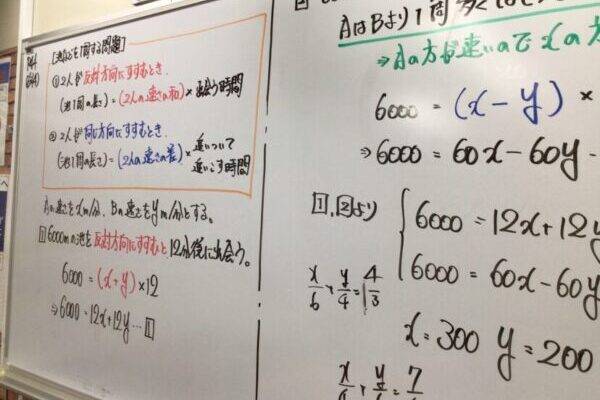 [池などを1周する問題]
① 2人が反対方向にすすむとき.
(池1周の長さ)=(2人の速さの和)×出会う時間
② 2人が同じ方向にすすむとき.
(池1周の長さ)=(2人の速さの差)×追いついて
追いこす時間
Aの速さをxm/分, Bの速さをym/分とする。
1 6000mの池を反対方向にすすむと12分後に出会う。
6000=(x+y)×12
⇒6000=12x+12y…1
AはBより1周多く
⇒Aの方が速いのでxの方
6000=(x-y)×
⇒6000=60x-60y
1,2より
6000=12x+12y
6000=60x-60y
x/6+y/4=4/3
x=300 y=200